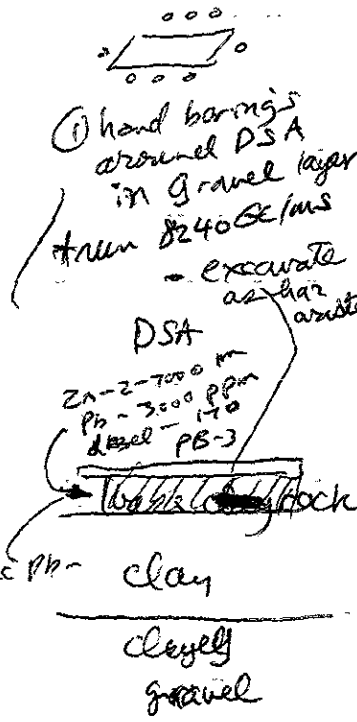 ① hand borings
around DSA
in gravel layer
+ run 8240 GC/MS
- excavate
as haz
waste
DSA
Zn-2-7000 in
Pb - 3000 ppm
diesel - 170
PB-3
rock
Pb -
clay
clayey
gravel